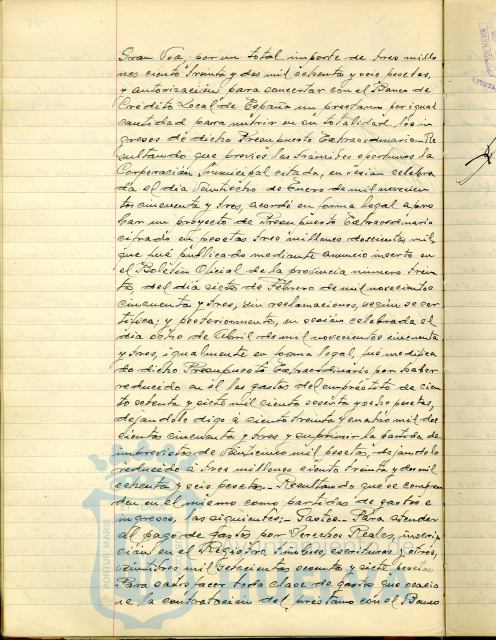 Gran Vía, por un total importe de tres millo
nes ciento treinta y dos mil setenta y seis pesetas,
y autorización para concertar con el Banco de
Crédito Local de España un prestamo por igual
cantidad para nutrir en su totalidad los in
gresos de dicho Presupuesto Extraordinario.- Re
sultando que previos los trámites oportunos la
Corporación municipal citada, en sesión celebra
da el dia veintiocho de Enero de mil novecien
tos cincuenta y tres, acordó en forma legal apro
bar un proyecto de Presupuesto Extraordinario
cifrado en pesetas tres millones doscientas mil,
que fué publicado mediante anuncio inserto en
el Boletín Oficial de la provincia número trein
ta, del dia siete de Febrero de mil novecientos
cincuenta y tres, sin reclamaciones, según se cer
tifica; y posteriormente, en sesión celebrada el
dia ocho de Abril de mil novecientos cincuenta
y tres, igualmente en forma legal, fué modifica
do dicho Presupuesto Extraordinario por haber
reducido en él los gastos del empréstito de cien
to setenta y siete mil ciento sesenta y ocho pesetas,
dejandolo digo a ciento treinta y cuatro mil dos
cientas cincuenta y tres y suprimir la partida de
imprevistos de veinticinco mil pesetas, dejandolo
reducido a tres millones ciento treinta y dos mil
setenta y seis pesetas.- Resultando que se compren
den en el mismo como partidas de gastos e
ingresos, las siguientes:- Gastos.- Para atender
al pago de gastos por Derechos Reales, inscrip
ción en el Registro, timbres, escrituras y otros,
veintitres mil setecientas ochenta y siete pesetas.
Para satisfacer toda clase de gastos que ocasio
ne la contratación del préstamo con el Banco
PORTUS MARIS
Ayuntamiento de
HUELVA